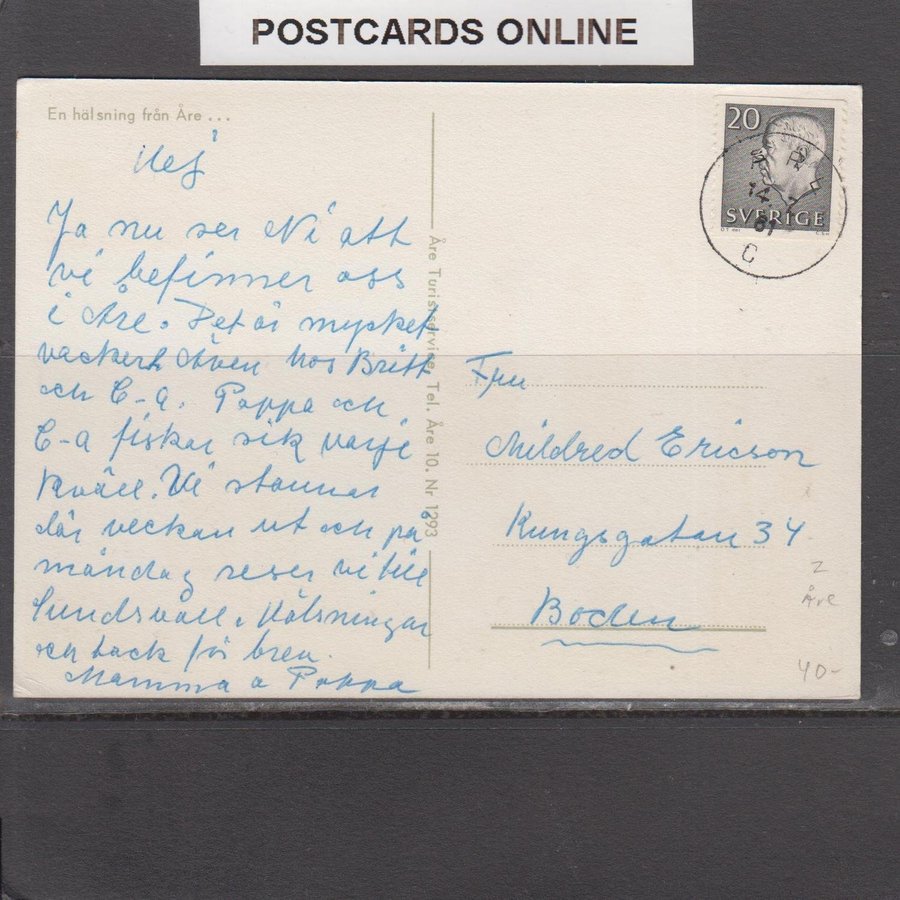 POSTCARDS ONLINE
En hälsning från Åre ...
Hej
Ja nu ser Ni att
vi befinner oss
i Åre. Det är mycket
vackert även hos Britt
och C-a. Pappa och
C-a fiskar sik varje
kväll. Vi stannar
där veckan ut och på
måndag reser vi till
Sundsvall. Hälsningar
och tack för brev.
Mamma o Pappa
Åre Turistservice, Tel. Åre 10. Nr 1293
20
SVERIGE
14. 7
61
C
Fru
Mildred Ericson
Kungsgatan 34
Boden
Z
Åre
40-